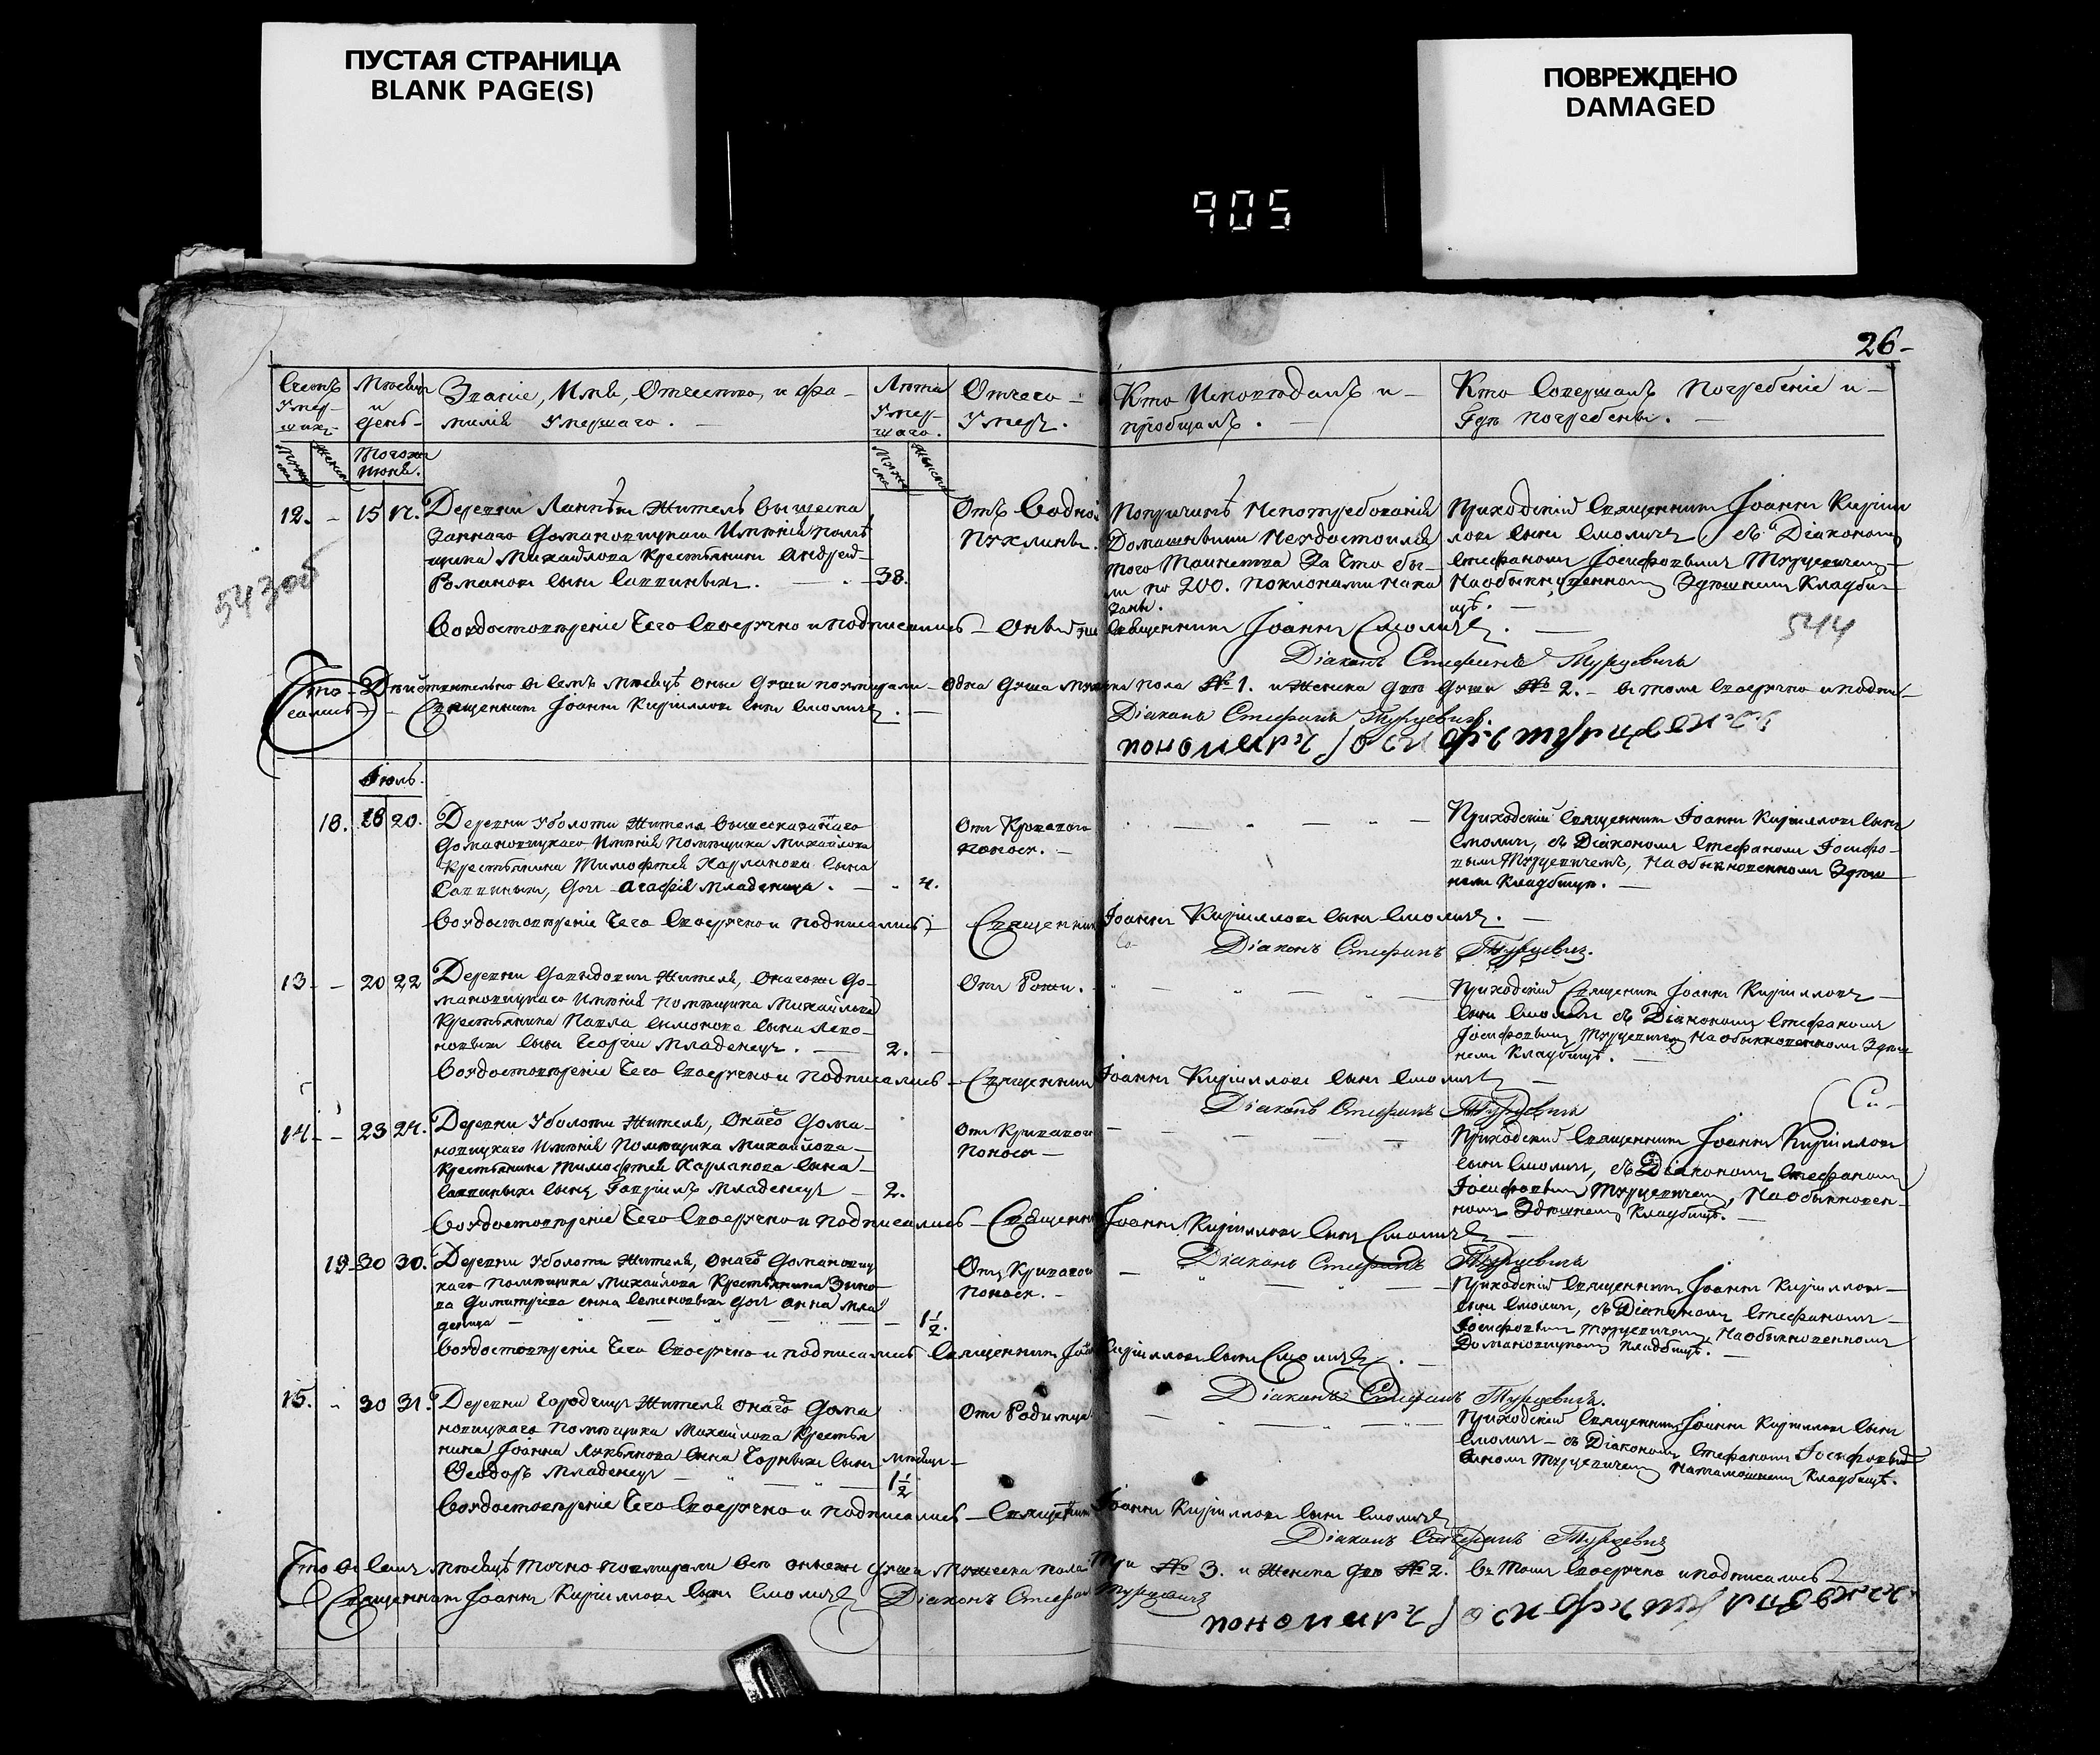 ПУСТАЯ СТРАНИЦА
BLANK PAGE(S)
ПОВРЕЖДЕНО
DAMAGED
905
26-
Счетъ умер-шихъ
Мѣсяцъ и день
Званіе, Имя, Отчество, и фа-
милія Умершаго. -
Лѣта Умер-шаго.
Отчего
Умеръ.
Кто Исповѣдалъ и -
пріобщалъ.
Кто Совершалъ Погребеніе и -
Гдѣ погребены.
Тогожъ
Июня.
12. - 15 17. Деревни
Житель вышеска
заннаго Домановицкаго Имѣнія Помѣ
щика Михайлова Крестьянинъ Андрей
Романовъ сынъ
38.
Отъ Водной
Пухлины.
По причинѣ Непотребованія
Домашними Неудостоился
того Таинства За Что бы-
ли по 200. поклонами нака
заны.
Приходскій Священникъ Іоаннъ Кирил
ловъ сынъ Смоличъ, съ Діакономъ
Стефаномъ Іосифовымъ
На обыкновенномъ Здѣшнемъ Кладби-
щѣ. -
543об
544
Во удостовѣреніе Чего Своеручно и подписались - Оный же Священникъ Іоаннъ Смоличъ.
Діаконъ Стефанъ Турцевичъ
Что Дѣйствительно въ семъ мѣсяцѣ оные души поумирали - одна душа мужеска пола № 1. и Женска двѣ души № 2. - въ томъ своеручно и подпи-
сались - Священникъ Іоаннъ Кирилловъ сынъ Смоличъ.
Діаконъ Стефанъ Турцевичъ.
Июль.
18. 18 20. Деревни Уболоти Жителя вышесказаннаго
Домановицкаго Имѣнія Помѣщика Михайлова
Крестьянина Тимофея Харланова сына
дочь Агафія Младеница. - 4.
Отъ Кровавого
поноса. -
Приходскій Священникъ Іоаннъ Кирилловъ сынъ
Смоличъ, съ Діакономъ Стефаномъ Іосифо-
вымъ Турцевичемъ, На обыкновенномъ Здѣш
немъ Кладбищѣ. -
Во удостовѣреніе Чего Своеручно и подписались - Священникъ Іоаннъ Кирилловъ сынъ Смоличъ. -
Діаконъ Стефанъ Турцевичъ.
13 - 20 22 Деревни Давыдовичи Жителя, Онагожъ До-
мановицкаго Имѣнія Помѣщика Михайлова
Крестьянина Павла Симонова сына
сынъ Георгій Младенецъ. - 2.
Отъ Рожи. -
Приходскій Священникъ Іоаннъ Кирилловъ -
сынъ Смоличъ съ Діакономъ Стефаномъ
Іосифовымъ Турцевичемъ На обыкновенномъ Здѣш
немъ Кладбищѣ. -
Во удостовѣреніе Чего Своеручно и подписались - Священникъ Іоаннъ Кирилловъ сынъ Смоличъ -
Діаконъ Стефанъ Турцевичъ
14 - 23 24. Деревни Уболоти Жителя, Онаго Дома-
новицкаго Имѣнія Помѣщика Михайлова -
Крестьянина Тимофея Харланова сына
сынъ Гавріилъ Младенецъ - 2.
Отъ Кровавого
Поноса -
Приходскій Священникъ Іоаннъ Кирилловъ
сынъ Смоличъ, съ Діакономъ Стефаномъ
Іосифовымъ Турцевичемъ, На обыкновен-
номъ Здѣшнемъ Кладбищѣ. -
Во удостовѣреніе Чего Своеручно и подписались - Священникъ Іоаннъ Кирилловъ сынъ Смоличъ -
Діаконъ Стефанъ Турцевичъ
19 - 30 30. Деревни Уболоти Жителя, Онаго Домановиц
каго Помѣщика Михайлова Крестьянина Зино-
ва Димитріева сына Семеновыхъ дочь Анна мла
деница - 1 1/2.
Отъ Кровавого
Поноса. -
Приходскій Священникъ Іоаннъ Кирилловъ -
сынъ Смоличъ, съ Діакономъ Стефаномъ -
Іосифовымъ Турцевичемъ На обыкновенномъ
Домановицкомъ Кладбищѣ. -
Во удостовѣреніе Чего Своеручно и подписались Священникъ Іоаннъ Кирилловъ сынъ Смоличъ. -
Діаконъ Стефанъ Турцевичъ.
15. - 30 31. Деревни Городчицъ Жителя Онаго Дома
новицкаго Помѣщика Михайлова Крестья
нина Іоанна Лукьянова сына Чорныхъ сынъ
Ѳеодоръ Младенецъ
Мѣсяцъ -
1 1/2
Отъ Родимца
Приходскій Священникъ Іоаннъ Кирилловъ сынъ
Смоличъ - съ Діакономъ Стефаномъ Іосифовымъ
Турцевичемъ На тамошнемъ Кладбищѣ.
Во удостовѣреніе Чего Своеручно и подписались - Священникъ Іоаннъ Кирилловъ сынъ Смоличъ
Діаконъ Стефанъ Турцевичъ
Что въ семъ мѣсяцѣ точно поумирали онѣ души Мужеска пола три № 3. и Женска двѣ № 2. въ томъ своеручно и подписались
Священникъ Іоаннъ Кирилловъ сынъ Смоличъ Діаконъ Стефанъ Турцевичъ